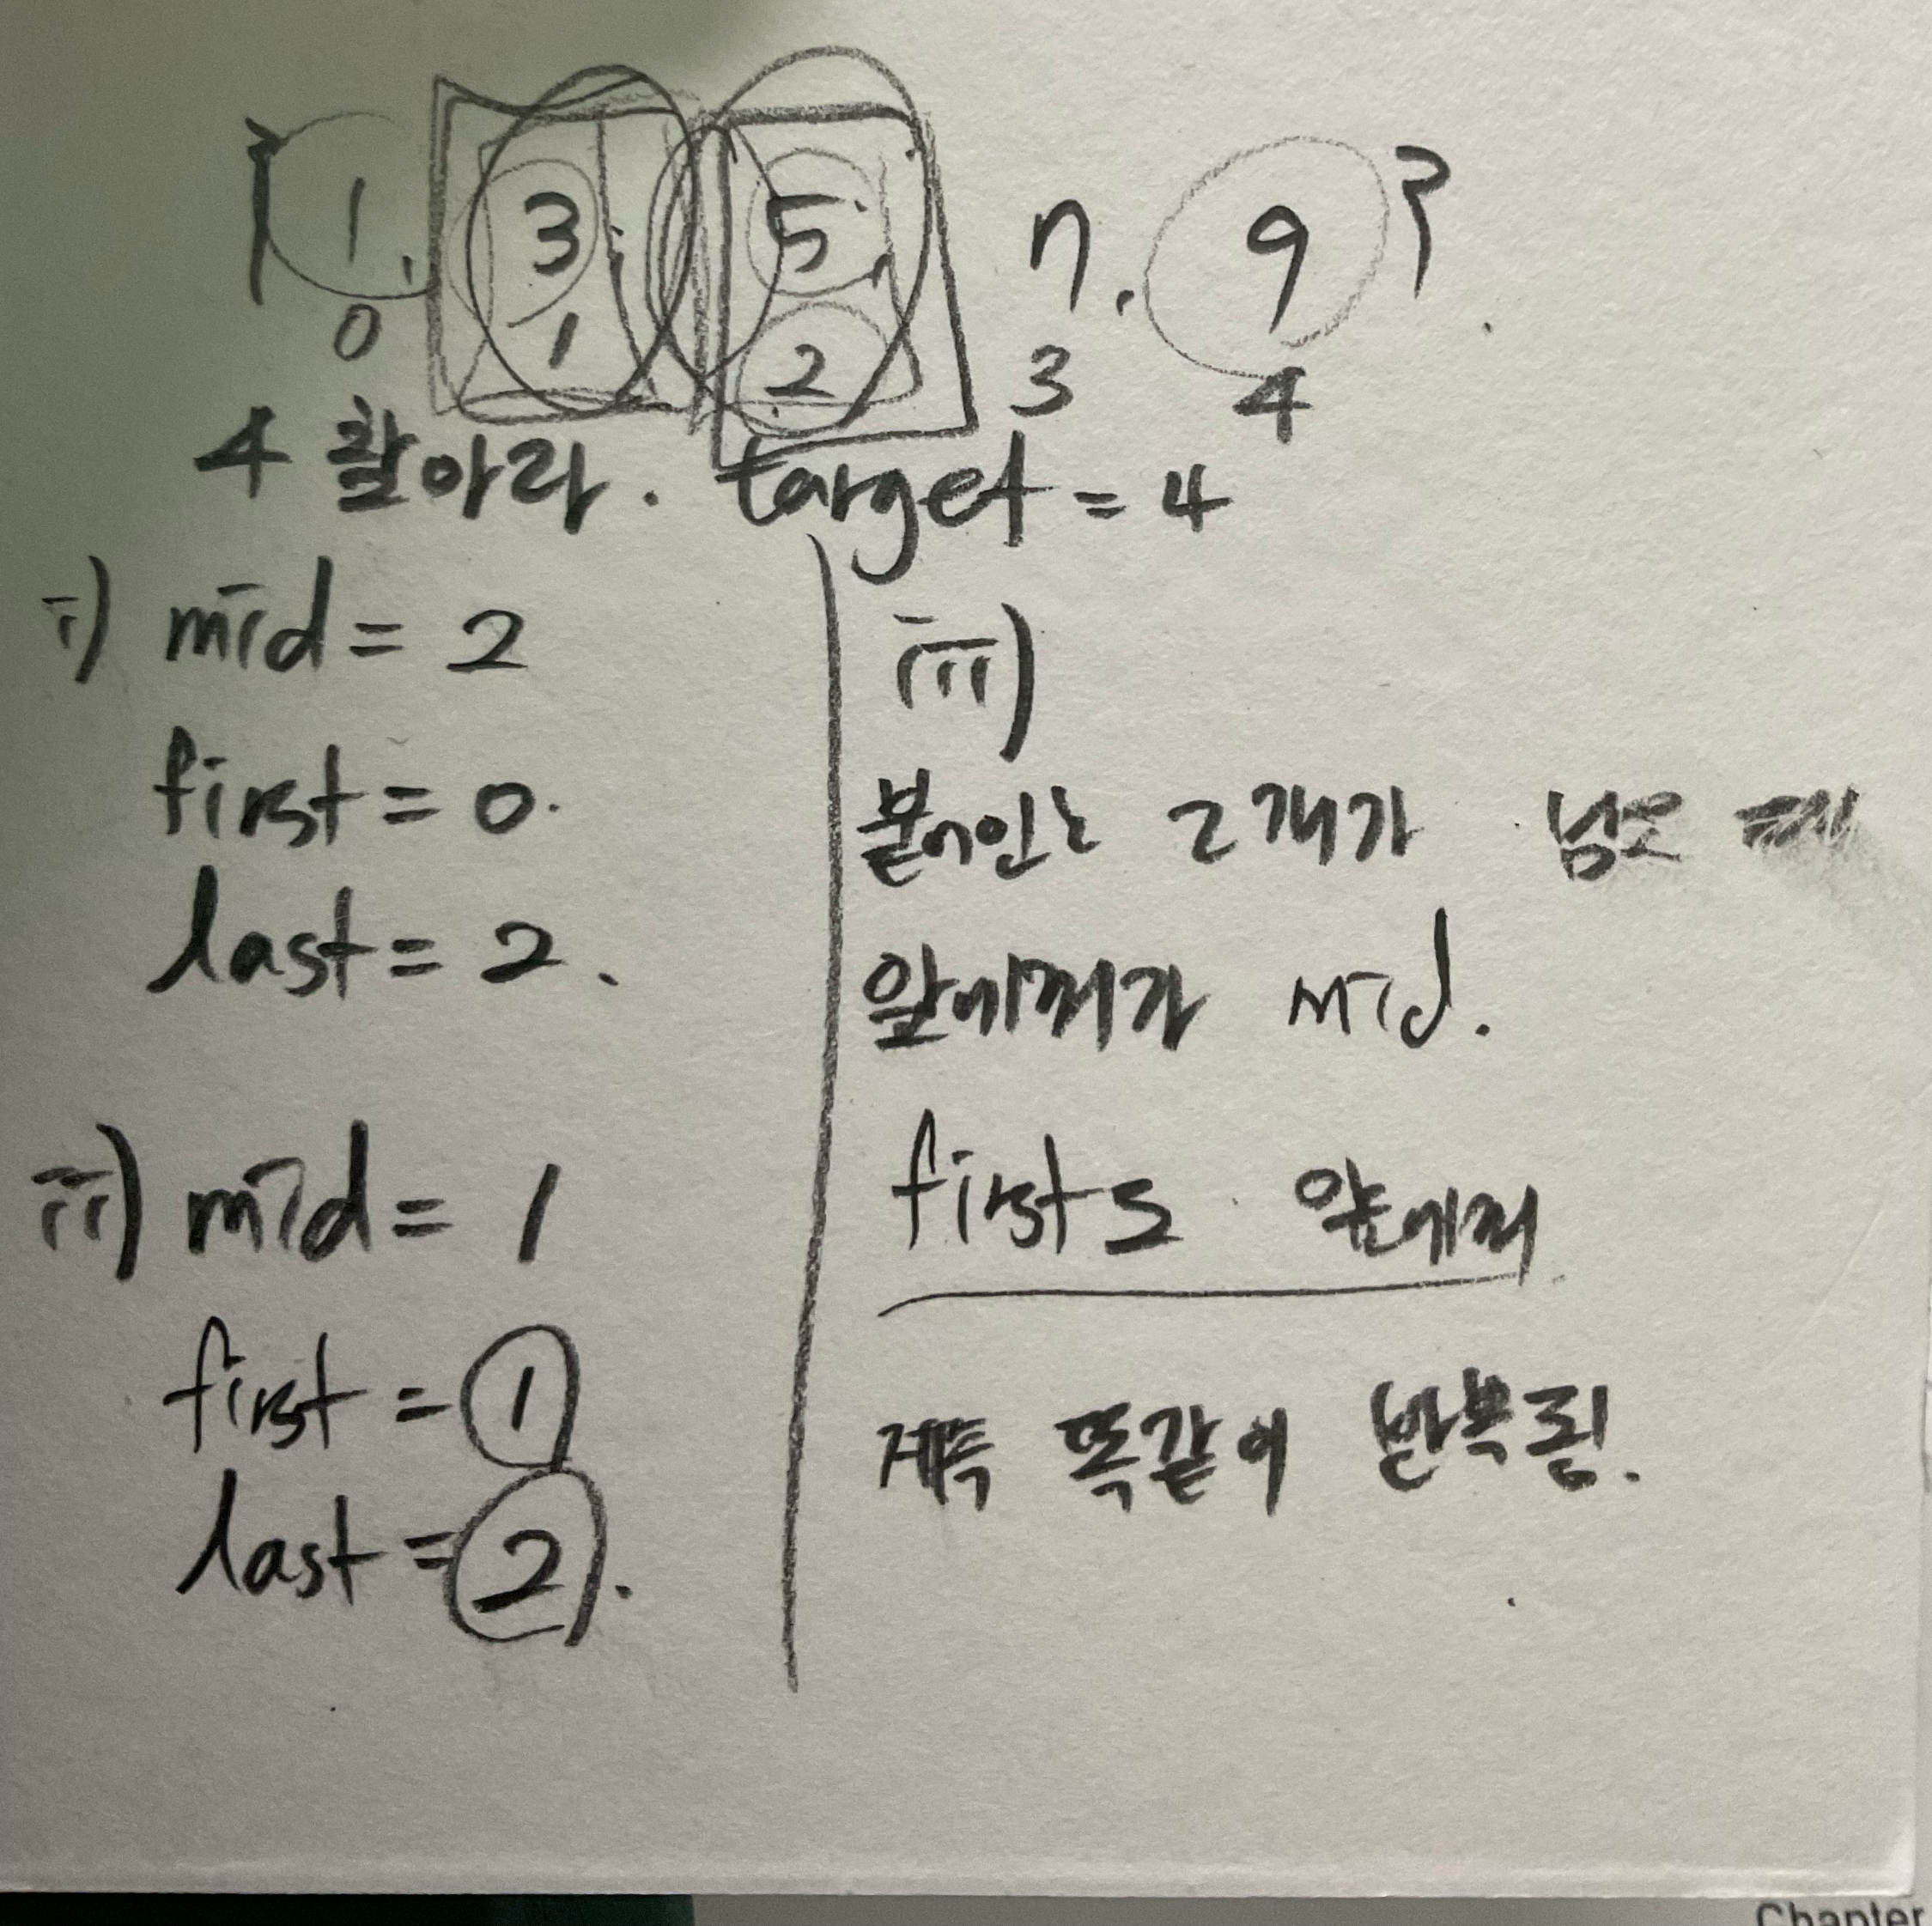 { 1, 3, 5, 7, 9 }.
0 1 2 3 4
4 찾아라. target = 4
i) mid = 2
first = 0.
last = 2.
ii) mid = 1
first = 1
last = 2.
iii)
붙어있는 2개가 남으
앞에꺼가 mid.
first도 앞에꺼
계속 똑같이 반복됨.
Chapter